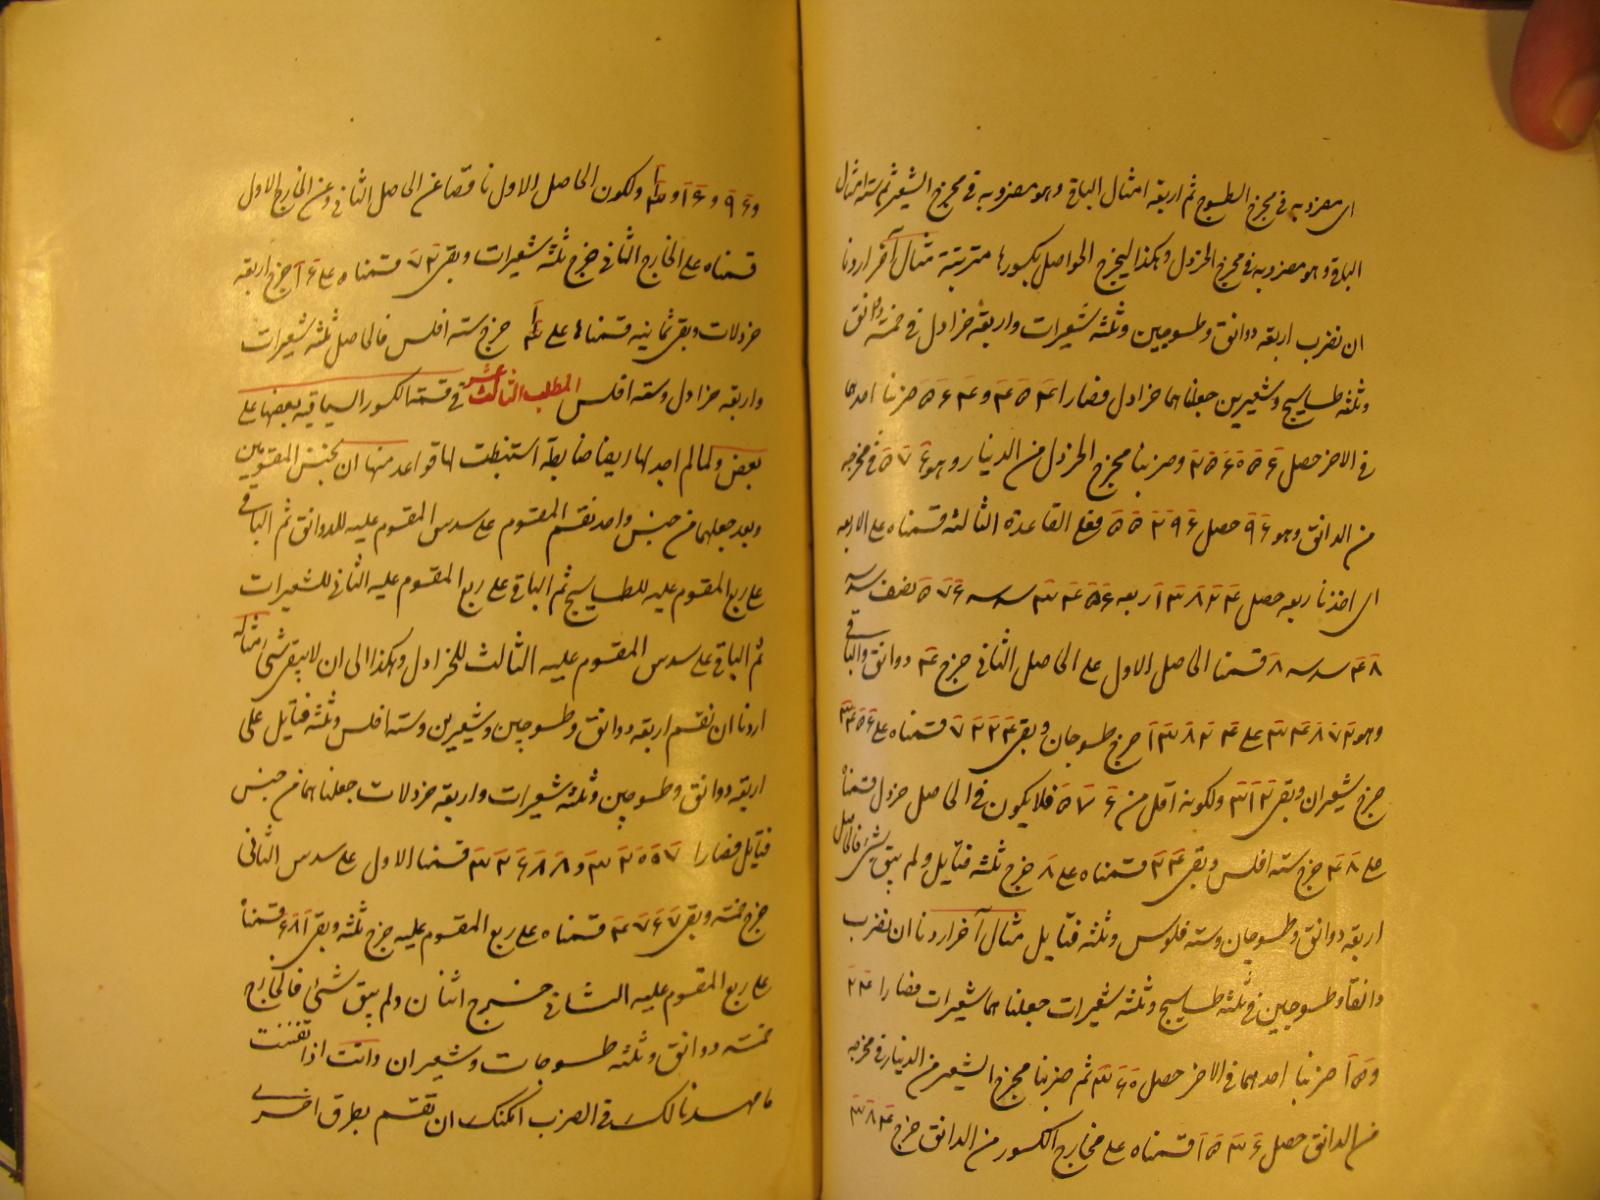 اى مضروبه فى مخرج الطسوج ثم اربعه امثال الباقى وهو مضروبه فى مخرج الشعير ثم سته امثال
الباقى وهو مضروبه فى مخرج الخردل وهكذا ليخرج الحواصل بكسورها مترتبة مثال آخر اردنا
ان نضرب اربعه دوانق وطسوجين وثلثه شعيرات واربعة خرادل فى خمسه دوانق
وثلثه طساسيج وشعيرين جعلناهما خرادل فصارا ۴۵۴ و ۵۶۴ ضربنا احدهما
فى الاخر حصل ۲۵۶۰۵۶ وضربنا مخرج الخردل من الدينار وهو ۵۷۶ فى مخرجه
من الدانق وهو ۹۶ حصل ۵۵۲۹۶ فعلى القاعدة الثالثه قسمناه على الاربعه
اى اخذنا ربعه حصل ۱۳۸۲۴ ربعه ۳۴۵۶ سدسه ۵۷۶ نصف سدسه
۴۸ سدسه ۸ قسمنا الحاصل الاول على الحاصل الثانى خرج ۴ دوانق والباقى
وهو ۳۴۸۷۲ على ۱۳۸۲۴ خرج طسوجان وبقى ۷۲۲۴ قسمناه على ۳۴۵۶
خرج شعيران وبقى ۳۱۲ ولكونه اقل من ۵۷۶ فلا يكون فى الحاصل خردل قسمناه
على ۴۸ خرج سته افلس وبقى ۲۴ قسمناه على ۸ خرج ثلثه فتايل ولم يبق شئ فالحاصل
اربعه دوانق وطسوجان وسته فلوس وثلثه فتايل مثال آخر اردنا ان نضرب
دانقا وطسوجين فى ثلثه طساسيج وثلثه شعيرات جعلناهما شعيرات فصارا ۲۴
و ۱۵ ضربنا احدهما فى الاخر حصل ۳۶۰ ثم ضربنا مخرج الشعير من الدينار فى مخرجه
من الدانق حصل ۱۵۳۶ قسمناه على مخارج الكسور من الدانق خرج ۳۸۴
و ۹۶ و ۱۶ و ولكون الحاصل الاول ناقصا عن الحاصل الثانى وعن الخارج الاول
قسمناه على الخارج الثانى خرج ثلثه شعيرات وبقى ۷۲ قسمناه على ۱۶ خرج اربعه
خردلات وبقى ثمانيه قسمناها على خرج سته افلس فالحاصل ثلثه شعيرات
واربعه خرادل وسته افلس المطلب الثالث عشر فى قسمة الكسور السياقيه بعضها على
بعض ولما لم اجد لها ايضا ضابطه استنبطت لها قواعد منها ان نجنس المقسومين
وبعد جعلهما من جنس واحد نقسم المقسوم على سدس المقسوم عليه للدوانق ثم الباقى
على ربع المقسوم عليه للطساسيج ثم الباقى على ربع المقسوم عليه الثانى للشعيرات
ثم الباقى على سدس المقسوم عليه الثالث للخرادل وهكذا الى ان لا يبقى شئ مثاله
اردنا ان نقسم اربعه دوانق وطسوجين وشعيرين وسته افلس وثلثه فتايل على
اربعه دوانق وطسوجين وثلثه شعيرات واربعه خردلات جعلناهما من جنس
فتايل فصارا ۳۲۵۵۷ و ۳۲۶۸۸ قسمنا الاول على سدس الثانى
خرج خمسه وبقى ۴۷۶۷ قسمناه على ربع المقسوم عليه خرج ثلثه وبقى ۶۸۱ قسمناه
على ربع المقسوم عليه الثانى خرج اثنان ولم يبق شئ فالخارج
خمسه دوانق وثلثه طسوجات وشعيران وانت اذا تفننت
ما مهدنا لك فى الضرب امكنك ان تقسم بطرق اخرى